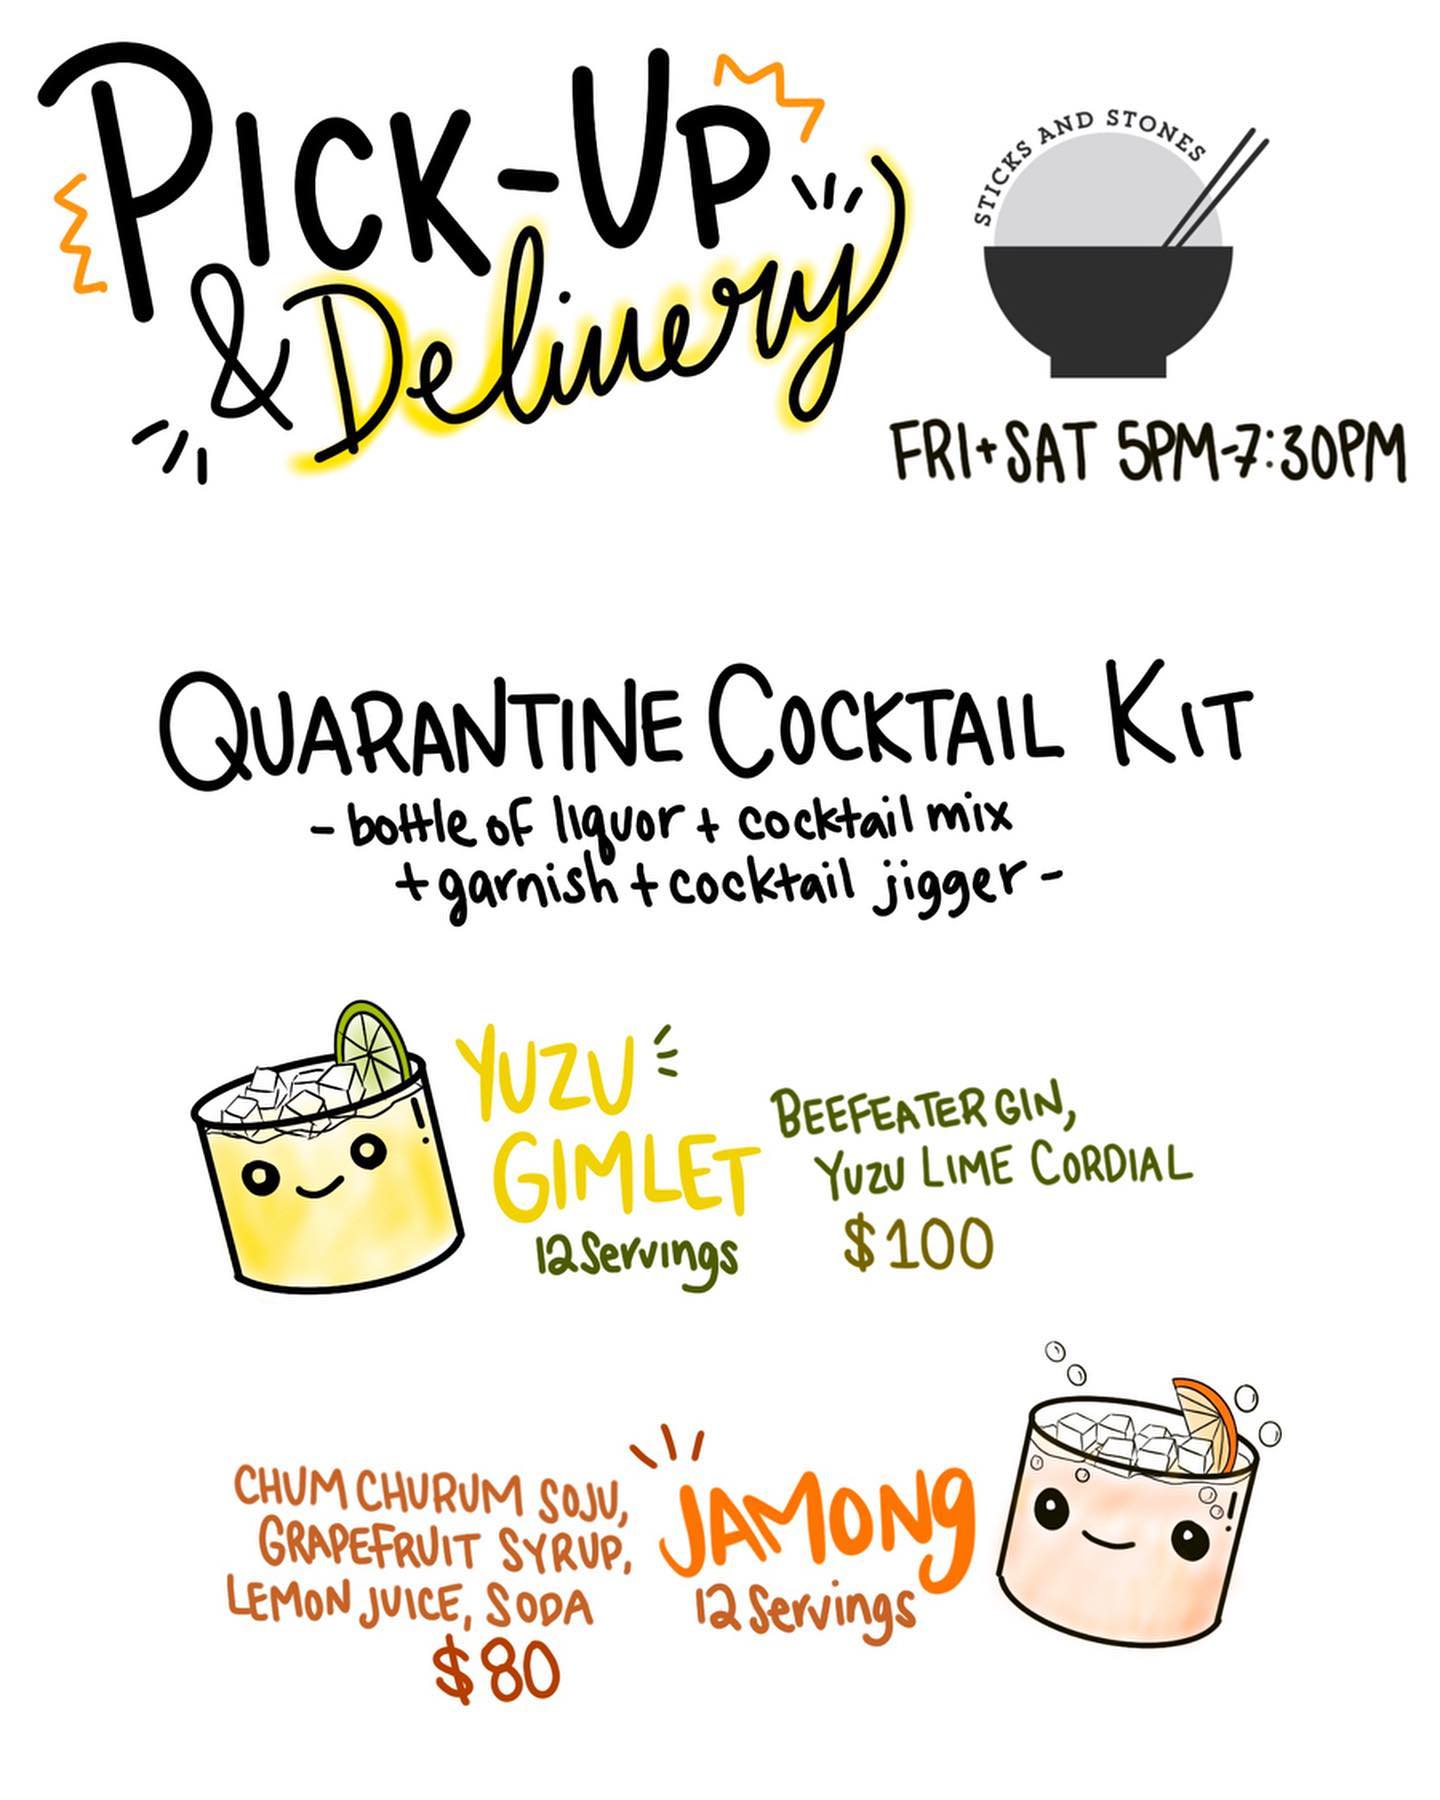 PICK-UP
& Delivery
STICKS AND STONES
FRI+SAT 5PM-7:30PM
QUARANTINE COCKTAIL KIT
- bottle of liquor + cocktail mix
+ garnish + cocktail jigger -
YUZU
GIMLET
12 Servings
BEEFEATER GIN,
YUZU LIME CORDIAL
$100
CHUM CHURUM SOJU,
GRAPEFRUIT SYRUP,
LEMON JUICE, SODA
$80
JAMONg
12 Servings